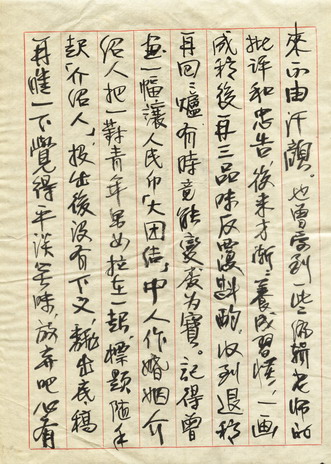 来不由汗颜。也曾受到一些编辑老师的
批评和忠告，后来才渐渐养成习惯，一画
成稿后再三品味反复斟酌，收到退稿
再回回炉，有时竟能变废为宝。记得曾
画一幅让人民币“大团结”中人作婚姻介
绍人把一对青年男女拉在一起，标题随手
起“介绍人”，投出后没有下文，翻出底稿
再瞧一下觉得平淡无味，放弃吧心有